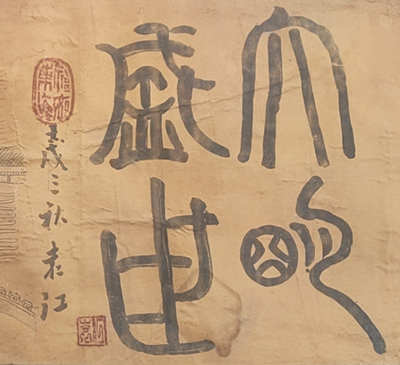 大明
盛世
壬戌三秋袁江